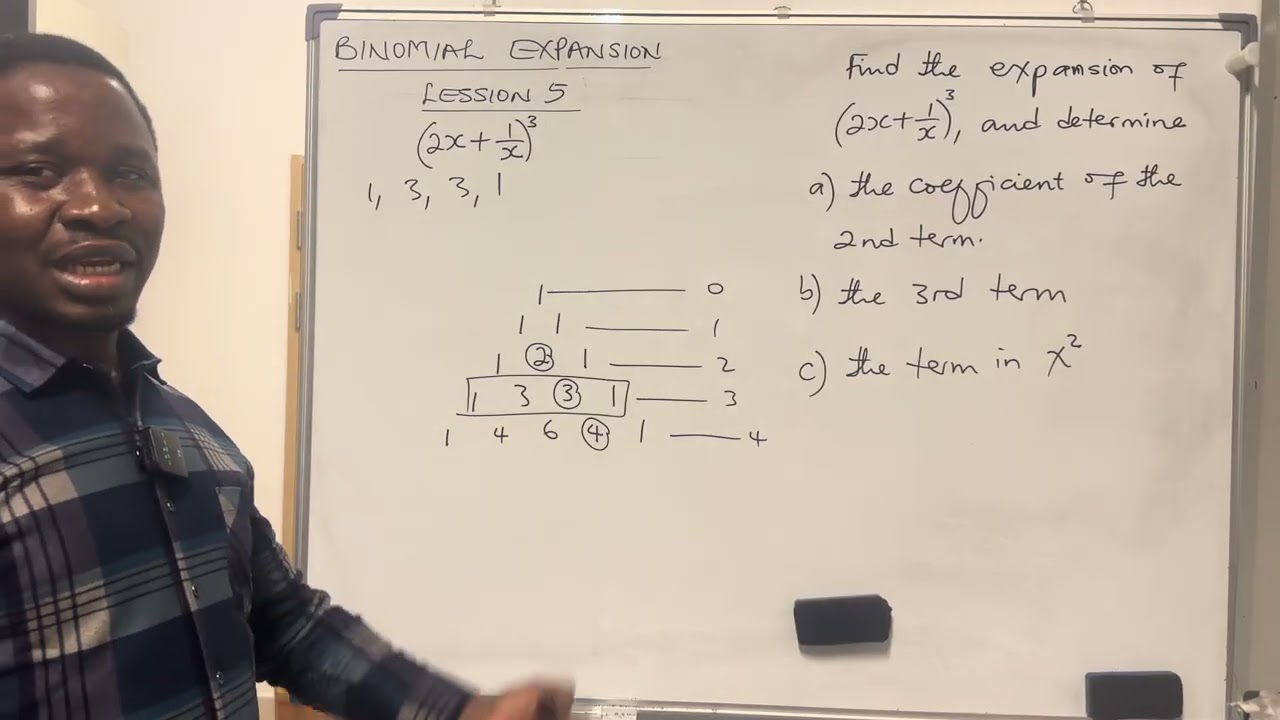 BINOMIAL EXPANSION
LESSION 5
(2x+1/x)^3
1, 3, 3, 1
1 0
1 1 1
1 2 1 2
1 3 3 1 3
1 4 6 4 1 4
Find the expansion of
(2x+1/x)^3, and determine
a) the coefficient of the
2nd term.
b) the 3rd term
c) the term in x^2